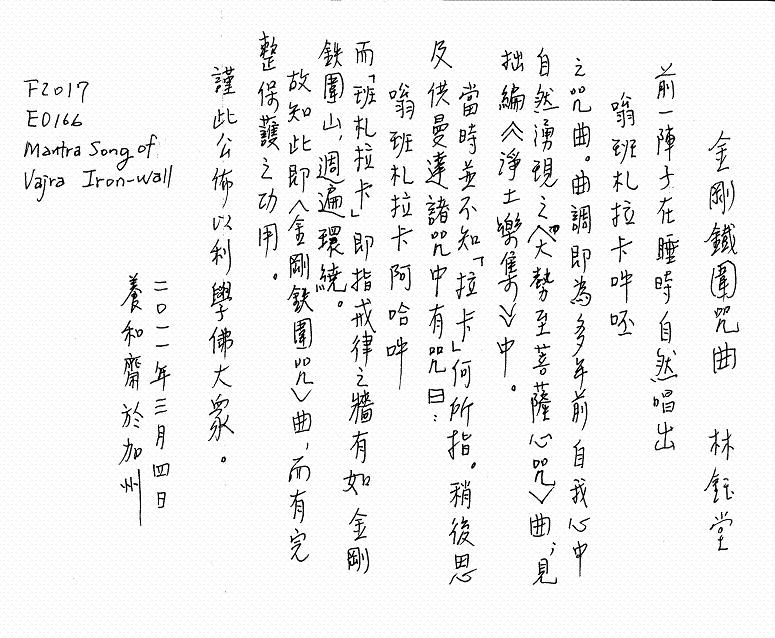 金剛鐵圍咒曲　林鈺堂
前一陣子在睡時自然唱出
嗡班札拉卡吽呸
之咒曲。曲調即為多年前自我心中
自然湧現之〈大勢至菩薩心咒〉曲,見
拙編《淨土樂集》中。
當時並不知「拉卡」何所指。稍後思
及供曼達諸咒中有咒曰：
嗡班札拉卡阿哈吽
而「班札拉卡」即指戒律之牆有如金剛
鉄圍山,週遍環繞。
故知此即〈金剛鉄圍咒〉曲,而有完
整保護之功用。
謹此公佈以利學佛大眾。
二〇一一年三月四日
養和齋於加州
F2017
E0166
Mantra Song of
Vajra Iron-wall